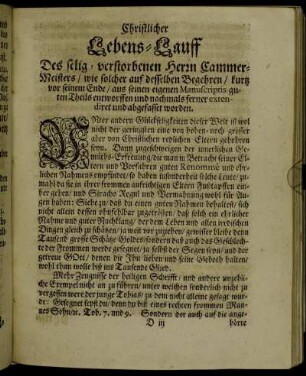 Christlicher
Lebens-Lauff
Des selig-verstorbenen Herrn Cammer-
Meisters / wie solcher auf desselben Begehren / kurtz
vor seinem Ende / aus seinen eigenen Manuscriptis gu-
ten Theils entworffen und nachmals ferner exten-
diret und abgefasset worden.
Unter andern Glückseligkeiten dieser Welt ist wol
nicht der geringsten eine von hohen / noch grösser
aber von Christlichen redlichen Eltern gebohren
seyn. Dann zugeschweigen der innerlichen Ge-
müths-Erfreuung / die man in Betracht seiner El-
tern und Vorfahren guten Renommée und ehr-
lichen Nahmens empfindet / so haben insonderheit solche Leute / zu-
mahl da sie in ihrer frommen aufrichtigen Eltern Fußstapffen ein-
her gehen / nach Sirachs Regul und Vermahnung wohl sich
haben: Siehe zu / daß du einen guten Nahmen behaltest / sich
nicht allein dessen ohnfehlbar zugetrösten / daß solch ein ehrlicher
Nahme und guter Nachklang / der dem Leben und allen irrdischen
Dingen gleich zu schätzen / ja weit vorzuziehen / gewisser bleibe denn
Tausend grosse Schätze Goldes / sondern daß auch das Geschlech-
te der Frommen werde gesegnet / ja selbst der Segen seyn / und der
getreue GOtt / denen die Ihn lieben und seine Geboth halten /
wohl thun wolle bis ins Tausende Glied.
Mehr Zeugnisse der heiligen Schrifft / und andere unzehli-
che Exempel nicht an zu führen / unter welchen sonderlich nicht zu
vergessen were der junge Tobias / zu dem nicht alleine gesagt wur-
de: Gesegnet seyst du / denn du bist eines rechten frommen Man-
nes Sohn / ic. Tob. 7. und 9. Sondern der auch auf die ange-
D iij
hörte